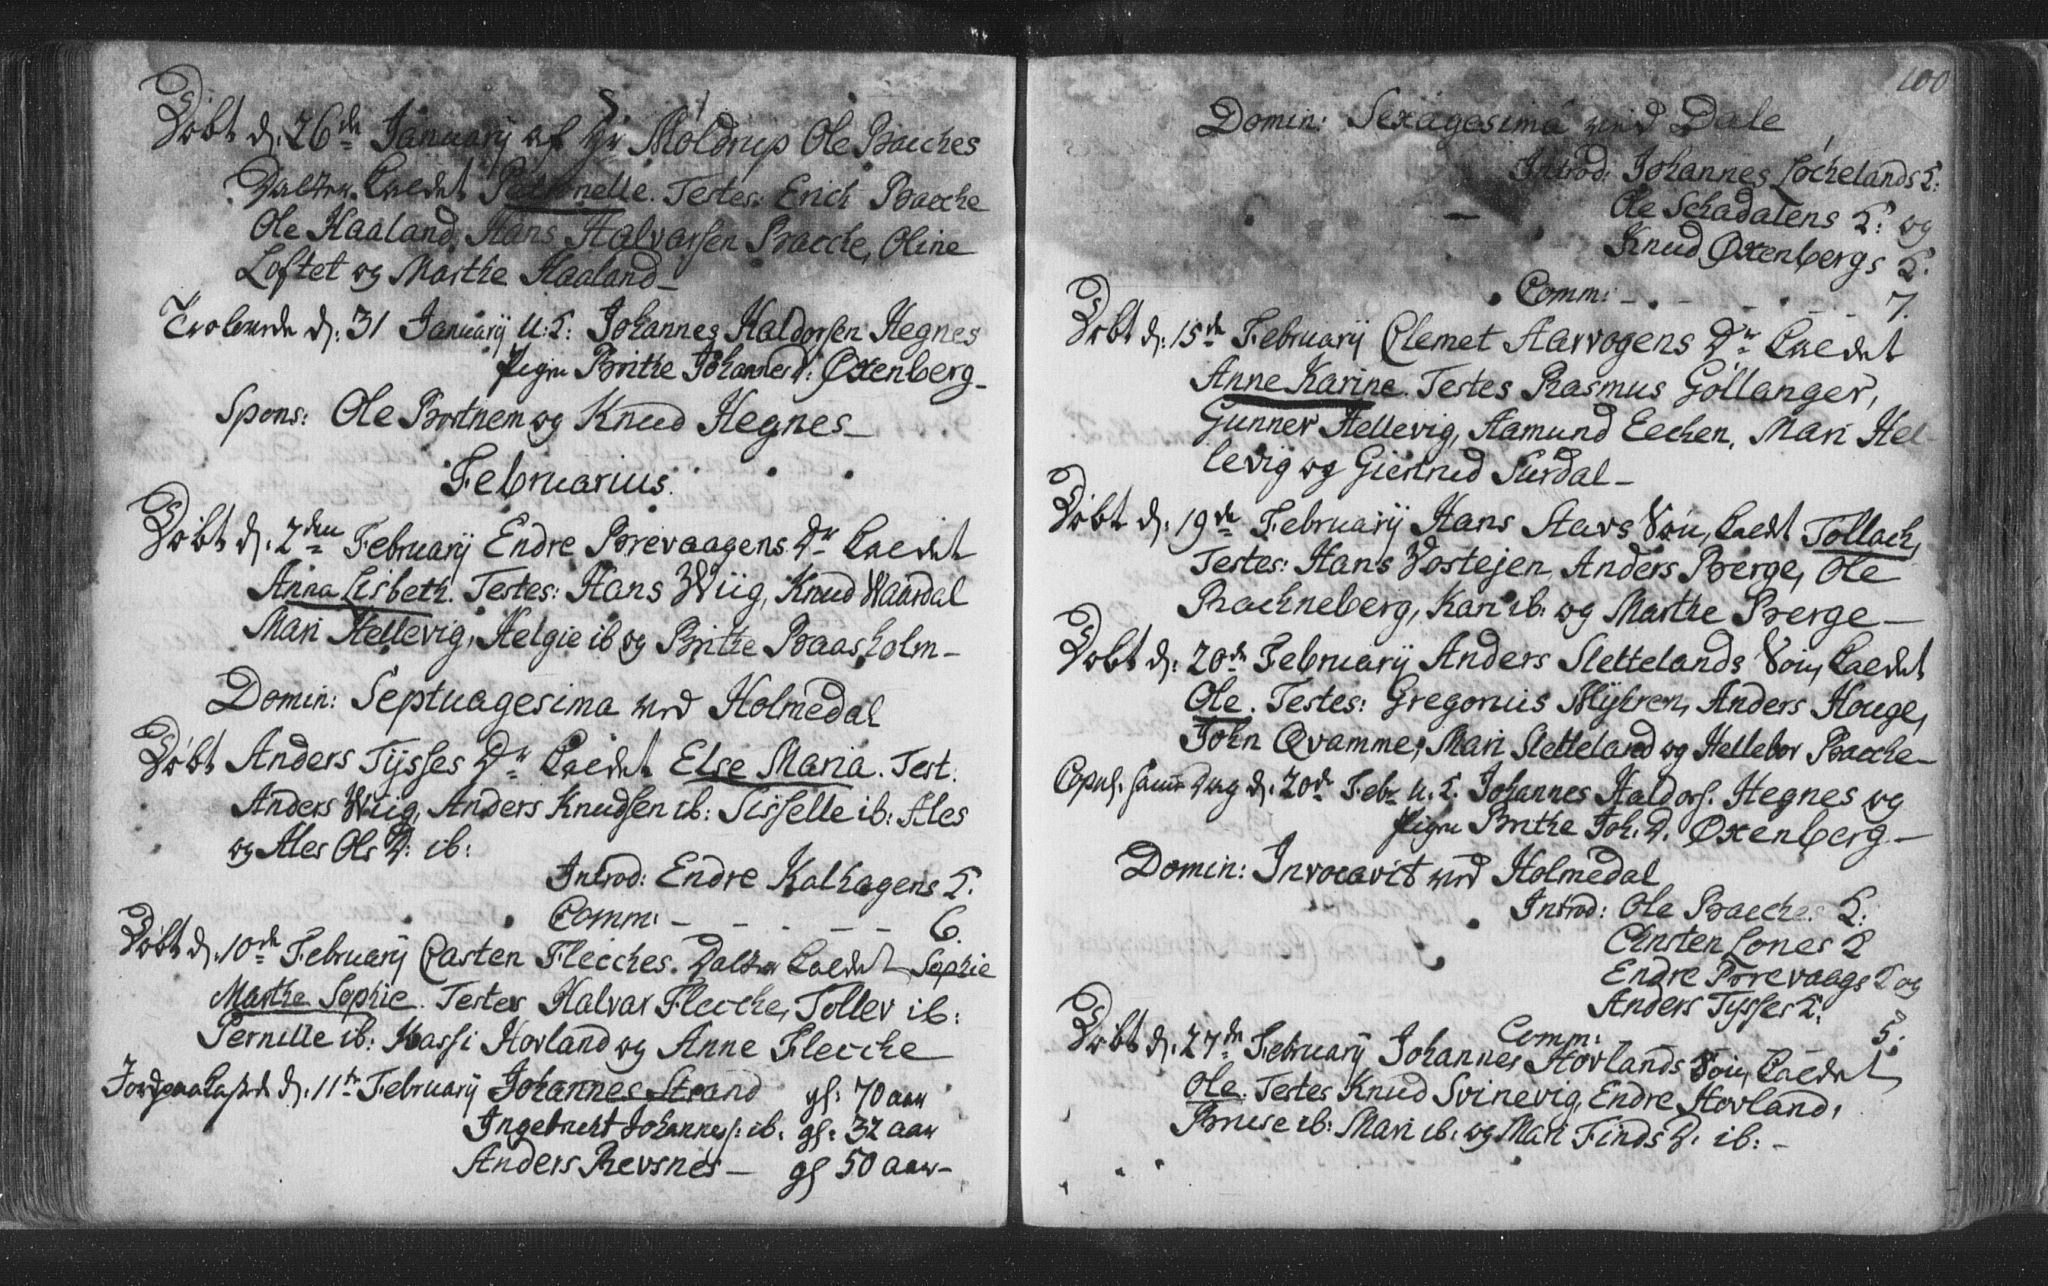 Døbt d. 26de Januarij af Hr Moldrup Ole Bacches
Datter kaldet Petronelle. Testes: Erich Bacche
Ole Haaland, Hans Halvarsen Bacche, Oline
Loftet og Marthe Haaland_
Trolovede d: 31 Januarij U:K: Johannes Haldorsen Hegnes
Pigen Brithe Johannes D: Øxenberg_
Spons: Ole Bortnem og Knud Hegnes_
Februarius.
Døbt d. 2den Februarij Endre Brevaagens Dr kaldet
Anna Lisbeth. Testes: Hans Wiig, Knud Waardal
Mari Hellevig, Helgie ib og Brithe Baasholm_
Domin: Septuagesima ved Holmedal
Døbt Anders Tysses Dr kaldet Else Maria. Test:
Anders Wiig, Anders Knudsen ib: Sisselle ib: Ales
og Ales Ols D: ib:
Introd: Endre Kalhagens K.
Comm: _ - - - - 6.
Døbt d. 10de Februarij Casten Flecches. Datter kaldet Sophie
Marthe Sophie. Testes Halvar Flecche, Tollev ib:
Pernille ib: Massi Hovland og Anne Flecche
Jordpaakasted d. 11te Februarij Johannes Strand gl: 70 aar
Ingebricht Johanness: ib. gl: 32 aar
Anders Revsnes_ gl 50 aar_
100
Domin: Sexagesima ved Dale
Introd: Johannes Løchelands K:
Ole Schadalens K: og
Knud Øxenbergs K.
Comm: _ - - - - 7.
Døbt d: 15de Februarij Clemet Aarvogens Dr kaldet
Anne Karine. Testes Rasmus Göllanger,
Gunner Hellevig, Aamund Eechen, Mari Hel-
levig og Giertrud Surdal_
Døbt d. 19de Februarij Hans Stavs Søn, kaldt Tollach,
Testes: Hans Vostejen, Anders Berge, Ole
Rachneberg, Kari ib: og Marthe Berge_
Døbt d: 20de Februarij Anders Slettelands Søn, kaldet
Ole. Testes: Gregorius Myhren, Anders Houge,
John Qvamme, Mari Sletteland og Hellebor Bacche_
Copul. samme Dag d. 20de Febr U.K. Johannes Haldors. Hegnes og
Pigen Brithe Joh: D. Øxenberg_
Domin: Invocavit ved Holmedal
Introd: Ole Bacches K:
Christen Lones K
Endre Brevaags K og
Anders Tysses K:
Comm: 5.
Døbt d. 27de Februarij Johannes Hovlands Søn, kaldet
Ole. Testes Knud Svinevig, Endre Hovland,
Bruse ib: Mari ib: og Mari Finds D. ib: -